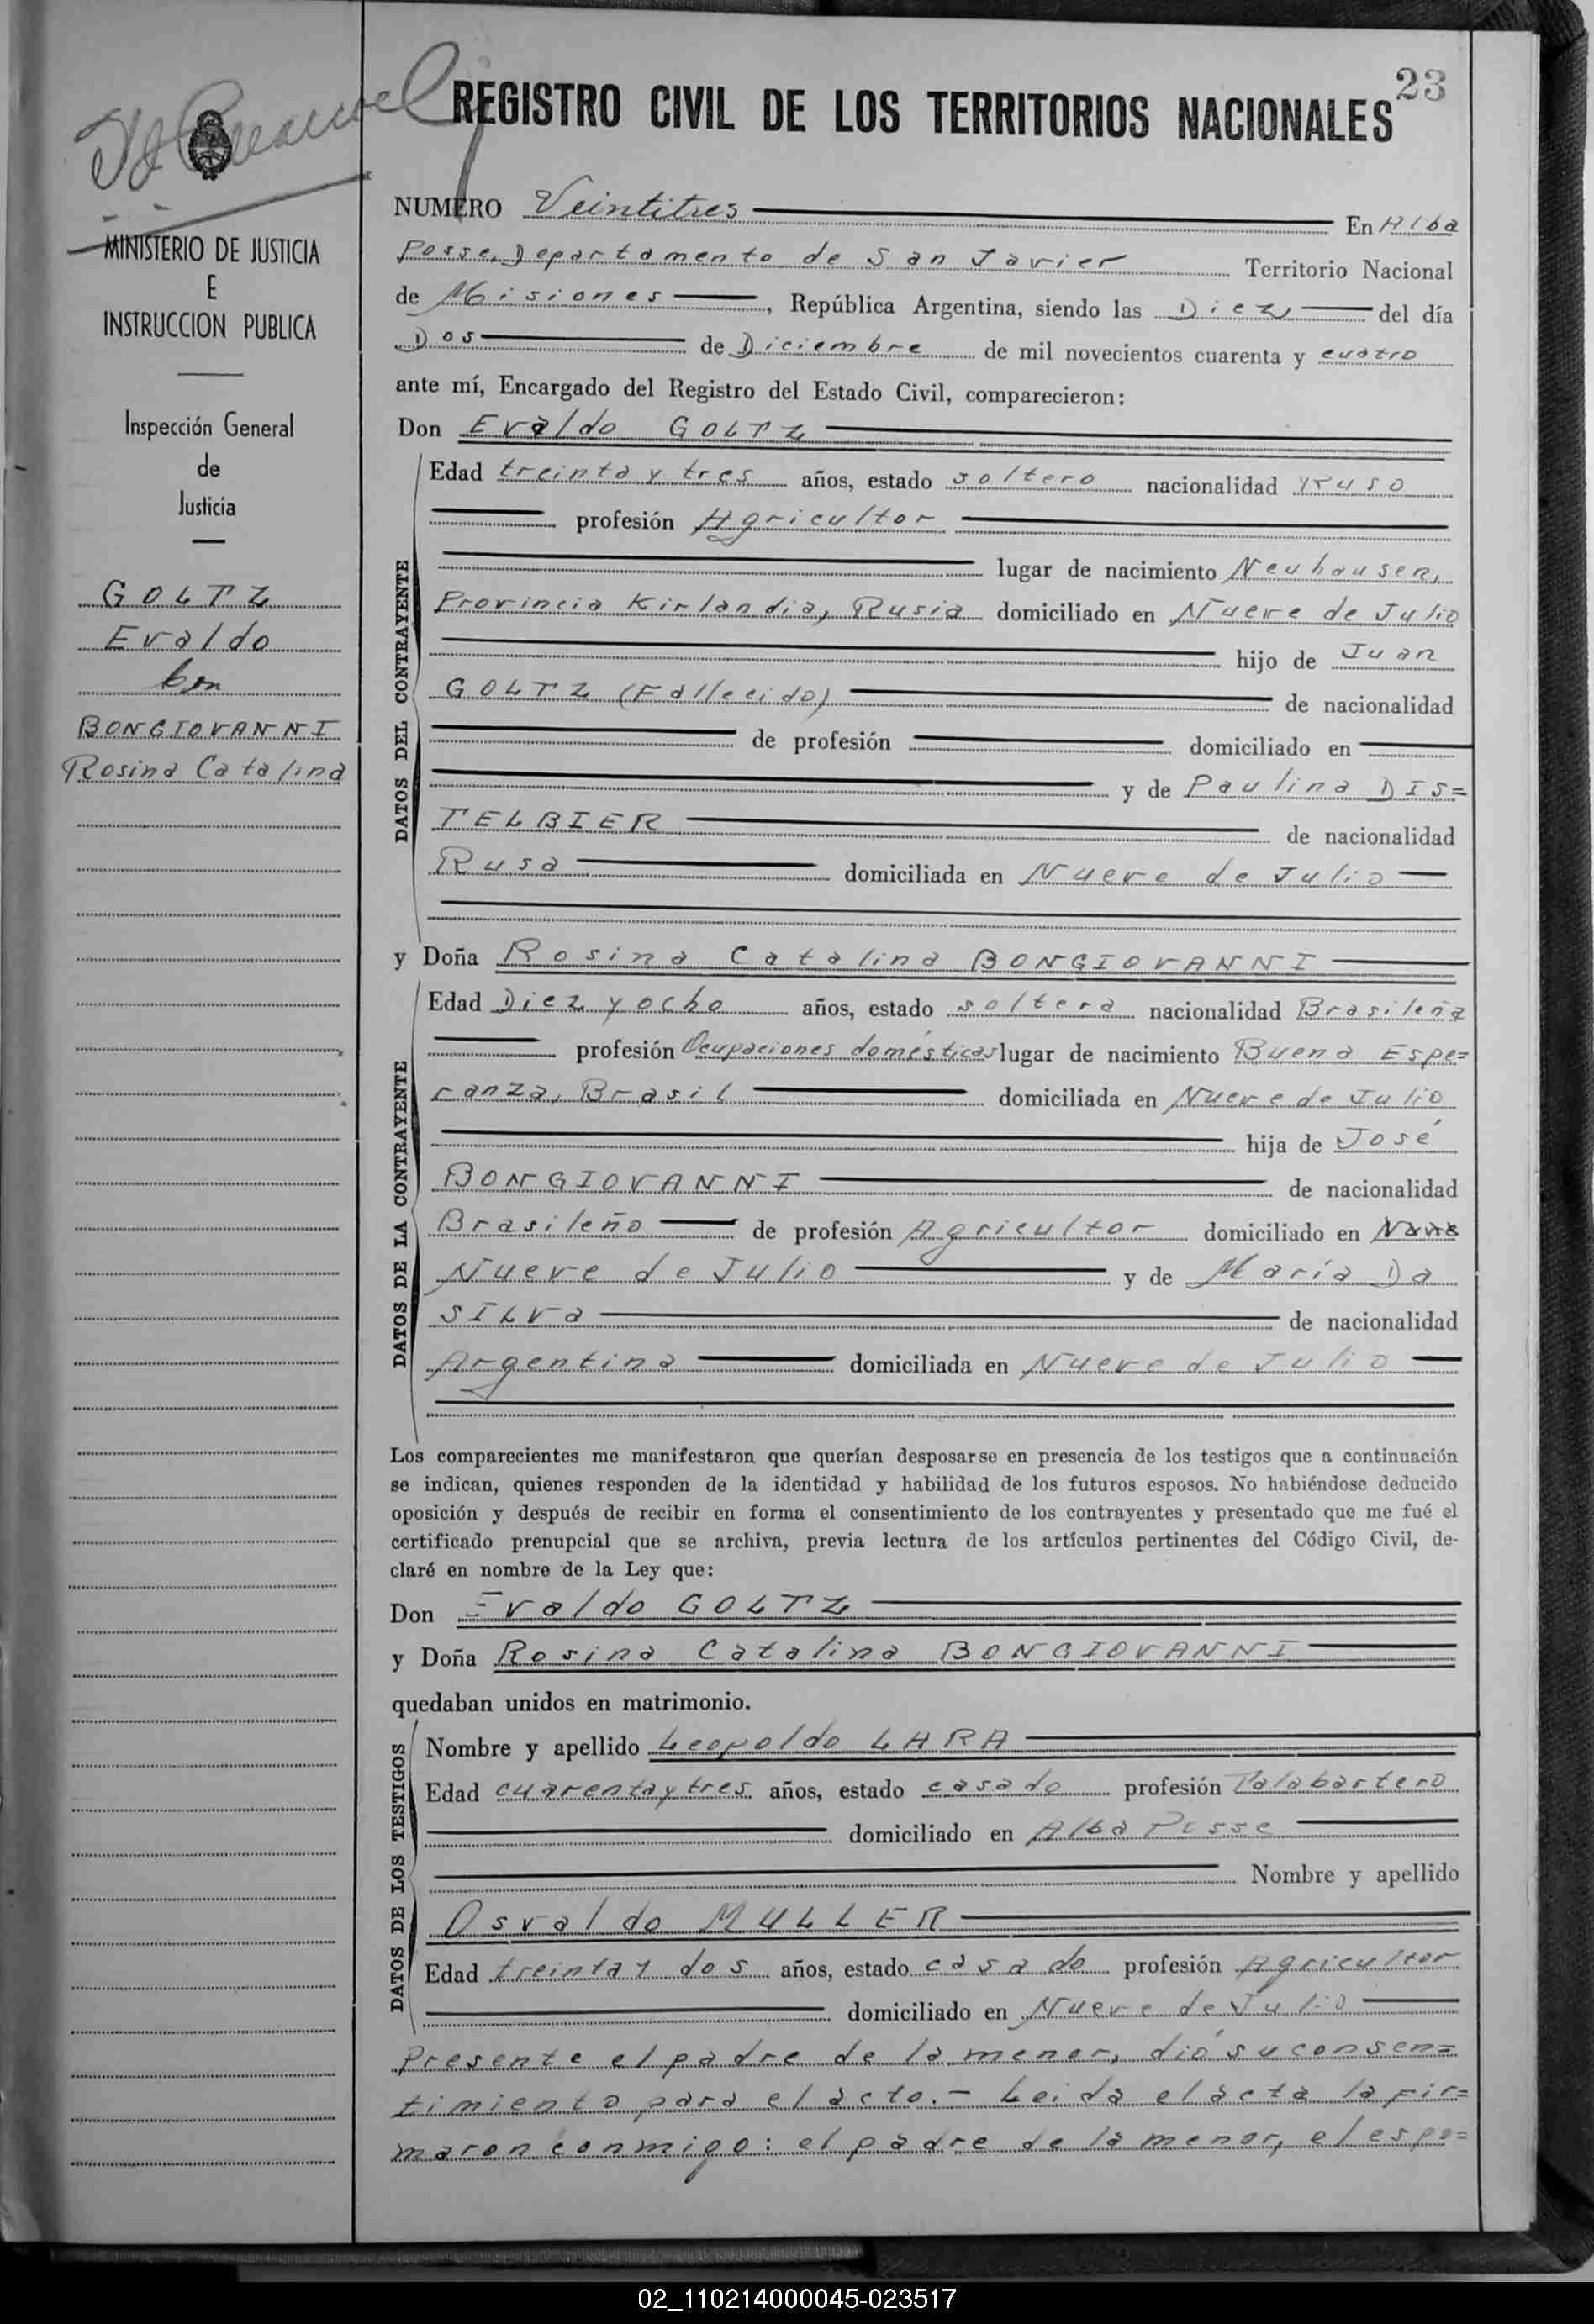 23
REGISTRO CIVIL DE LOS TERRITORIOS NACIONALES
MINISTERIO DE JUSTICIA
E
INSTRUCCION PUBLICA
Inspección General
de
Justicia
GOLTZ
Evaldo
con
BONGIOVANNI
Rosina Catalina
NUMERO Veintitres En Alba
Posse, Departamento de San Javier Territorio Nacional
de Misiones, República Argentina, siendo las Diez del día
Dos de Diciembre de mil novecientos cuarenta y cuatro
ante mí, Encargado del Registro del Estado Civil, comparecieron:
Don Evaldo GOLTZ
DATOS DEL CONTRAYENTE
Edad treinta y tres años, estado soltero nacionalidad ruso
profesión Agricultor
lugar de nacimiento Neuhausen,
Provincia Kirlandia, Rusia domiciliado en Nueve de Julio
hijo de Juan
GOLTZ (Fallecido) de nacionalidad
de profesión domiciliado en
y de Paulina DIS=
TELBIER de nacionalidad
Rusa domiciliada en Nueve de Julio
y Doña Rosina Catalina BONGIOVANNI
DATOS DE LA CONTRAYENTE
Edad Diez y ocho años, estado soltera nacionalidad Brasileña
profesión Ocupaciones domésticas lugar de nacimiento Buena Espe=
ranza, Brasil domiciliada en Nueve de Julio
hija de José
BONGIOVANNI de nacionalidad
Brasileño de profesión Agricultor domiciliado en
Nueve de Julio y de María Da
SILVa de nacionalidad
Argentina domiciliada en Nueve de Julio
Los comparecientes me manifestaron que querían desposarse en presencia de los testigos que a continuación
se indican, quienes responden de la identidad y habilidad de los futuros esposos. No habiéndose deducido
oposición y después de recibir en forma el consentimiento de los contrayentes y presentado que me fué el
certificado prenupcial que se archiva, previa lectura de los artículos pertinentes del Código Civil, de-
claré en nombre de la Ley que:
Don Evaldo GOLTZ
y Doña Rosina Catalina BONGIOVANNI
quedaban unidos en matrimonio.
DATOS DE LOS TESTIGOS
Nombre y apellido Leopoldo LARA
Edad cuarenta y tres años, estado casado profesión Talabartero
domiciliado en Alba Posse
Nombre y apellido
Osvaldo MULLER
Edad treinta y dos años, estado casado profesión Agricultor
domiciliado en Nueve de Julio
Presente el padre de la menor, dió su consen=
timiento para el acto.- Leida el acta la fir=
maron conmigo: el padre de la menor, el espo=
02_110214000045-023517